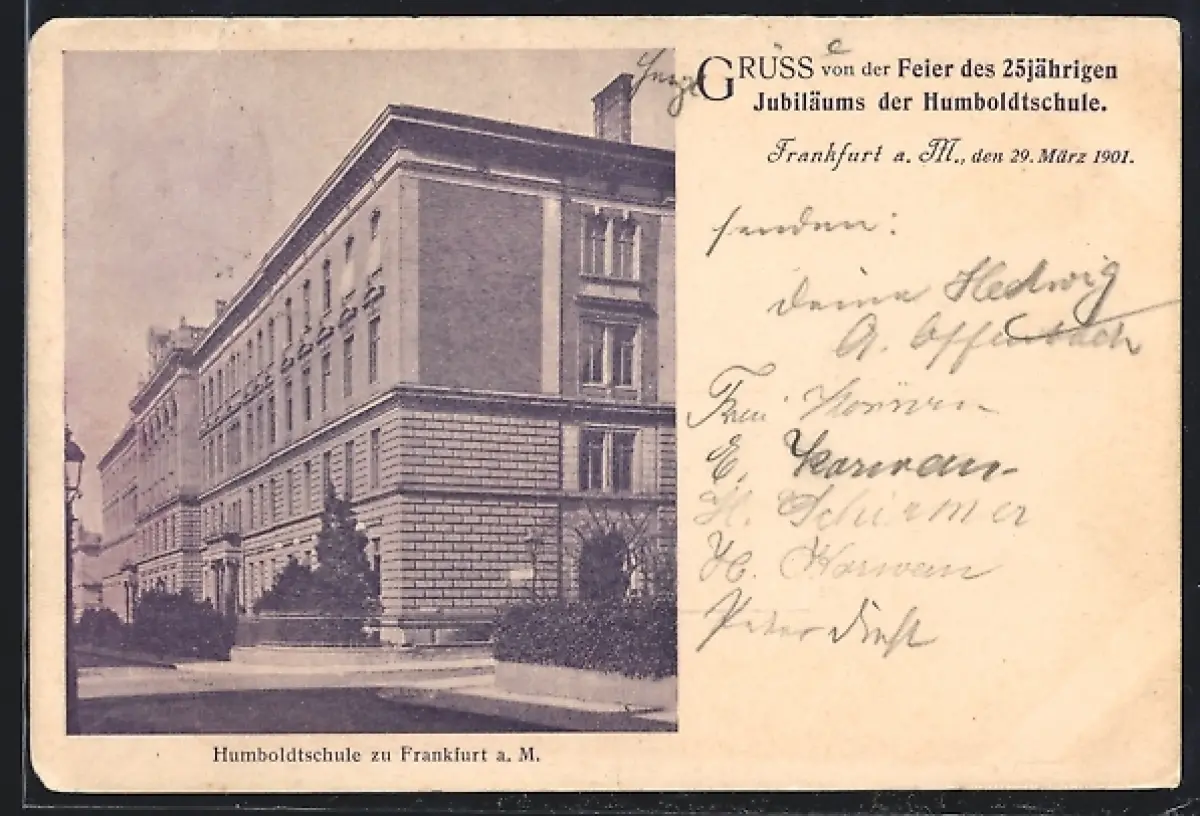 GRUSS e von der Feier des 25jährigen
Jubiläums der Humboldtschule.
Frankfurt a. M., den 29. März 1901.
senden:
deine Hedwig
A. Offenbach
E. Karwan
H. Schirmer
H. Karwan
Peter
Humboldtschule zu Frankfurt a. M.